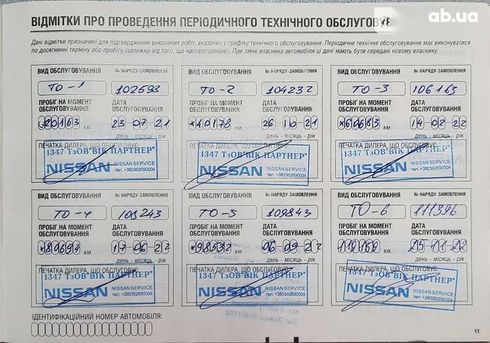 ab.ua
ВІДМІТКИ ПРО ПРОВЕДЕННЯ ПЕРІОДИЧНОГО ТЕХНІЧНОГО ОБСЛУГОВУ
Дані відмітки призначені для підтвердження виконаних робіт, вказаних у графіку технічного обслуговування. Періодичне технічне обслуговування має виконуватися
по досягненні терміну або пробігу (залежно від того, що настане раніше). При зміні власника автомобіля ці дані мають бути передані новому власнику.
ВИД ОБСЛУГОВУВАННЯ № НАРЯДУ-ЗАМОВЛЕННЯ
ТО-1 102593
ПРОБІГ НА МОМЕНТ ОБСЛУГОВУВАННЯ ДАТА ОБСЛУГОВУВАННЯ
20163 км. 23 07 21
день - місяць - рік
ПЕЧАТКА ДИЛЕРА, ЩО ОБСЛУГОВУЄ
1347 ТзОВ"ВІК ПАРТНЕР"
NISSAN NISSAN SERVICE
ВИД ОБСЛУГОВУВАННЯ № НАРЯДУ-ЗАМОВЛЕННЯ
ТО-2 104232
ПРОБІГ НА МОМЕНТ ОБСЛУГОВУВАННЯ ДАТА ОБСЛУГОВУВАННЯ
40178 км. 26 10 21
день - місяць - рік
1347 ТзОВ"ВІК ПАРТНЕР"
NISSAN NISSAN SERVICE
ВИД ОБСЛУГОВУВАННЯ № НАРЯДУ-ЗАМОВЛЕННЯ
ТО-3 106165
ПРОБІГ НА МОМЕНТ ОБСЛУГОВУВАННЯ ДАТА ОБСЛУГОВУВАННЯ
60663 км. 14 02 22
день - місяць - рік
1347 ТзОВ"ВІК ПАРТНЕР"
NISSAN NISSAN SERVICE
ВИД ОБСЛУГОВУВАННЯ № НАРЯДУ-ЗАМОВЛЕННЯ
ТО-4 108243
ПРОБІГ НА МОМЕНТ ОБСЛУГОВУВАННЯ ДАТА ОБСЛУГОВУВАННЯ
км.
день - місяць - рік
ПЕЧАТКА ДИЛЕРА, ЩО ОБСЛУГОВУЄ
1347 ТзОВ"ВІК ПАРТНЕР"
NISSAN NISSAN SERVICE
ВИД ОБСЛУГОВУВАННЯ № НАРЯДУ-ЗАМОВЛЕННЯ
ТО-5 109843
ПРОБІГ НА МОМЕНТ ОБСЛУГОВУВАННЯ ДАТА ОБСЛУГОВУВАННЯ
км. 06 09
день - місяць - рік
1347 ТзОВ"ВІК ПАРТНЕР"
NISSAN NISSAN SERVICE
ВИД ОБСЛУГОВУВАННЯ № НАРЯДУ-ЗАМОВЛЕННЯ
ТО-6 111396
ПРОБІГ НА МОМЕНТ ОБСЛУГОВУВАННЯ ДАТА ОБСЛУГОВУВАННЯ
км. 25 11
день - місяць - рік
ПЕЧАТКА ДИЛЕРА, ЩО ОБСЛУГОВУЄ
1347 ТзОВ"ВІК ПАРТНЕР"
NISSAN NISSAN SERVICE
ІДЕНТИФІКАЦІЙНИЙ НОМЕР АВТОМОБІЛЯ:
11